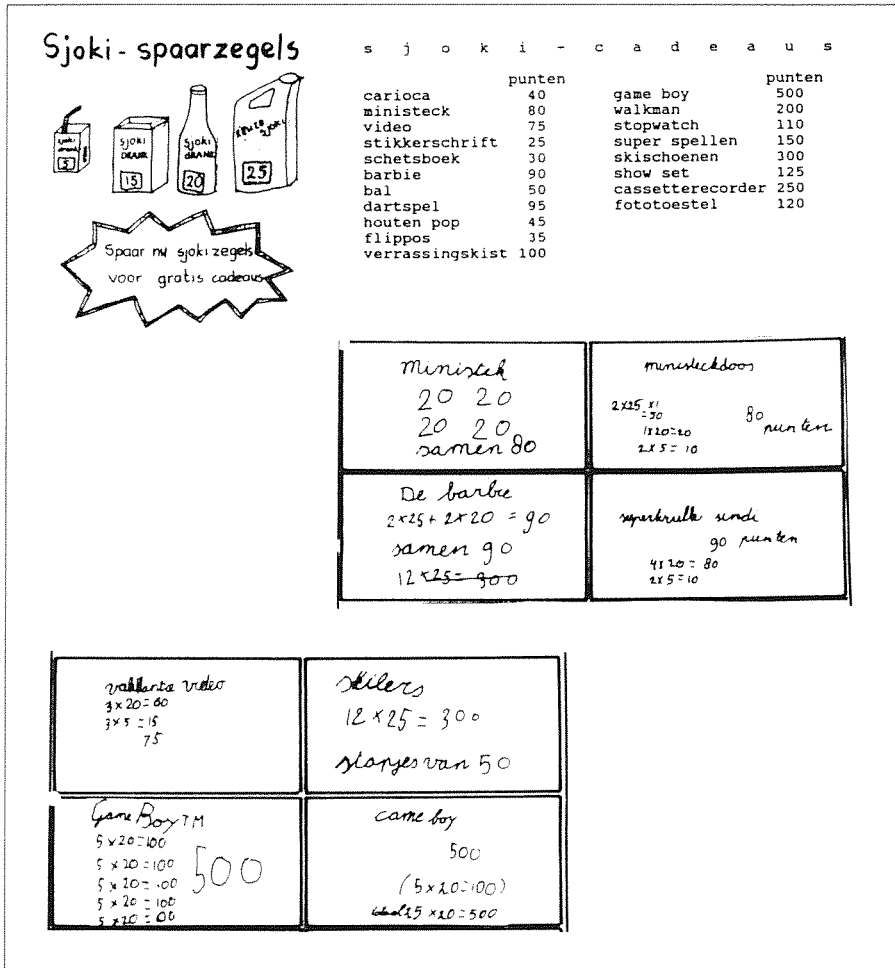 Sjoki - spaarzegels
sjoki
drank
5
sjoki
DRANK
15
sjoki
DRANK
20
sjoki
25
Spaar nu sjokizegels
voor gratis cadeaus
s j o k i - c a d e a u s
punten
carioca 40
ministeck 80
video 75
stikkerschrift 25
schetsboek 30
barbie 90
bal 50
dartspel 95
houten pop 45
flippos 35
verrassingskist 100
punten
game boy 500
walkman 200
stopwatch 110
super spellen 150
skischoenen 300
show set 125
cassetterecorder 250
fototoestel 120
ministek
20 20
20 20
samen 80
ministeckdoos
2x25 x1
=50
1x20=20
2x5=10
80
punten
De barbie
2x25+2x20 = 90
samen 90
12x25= 900
superkrulk sindi
90 punten
4x20=80
2x5=10
video
3x20=60
3x5=15
75
skilers
12x25=300
stapjes van 50
Game Boy TM
5x20=100
5x20=100
5x20=100
5x20=100
5x20=100
500
came boy
500
(5x20=100)
25x20=500